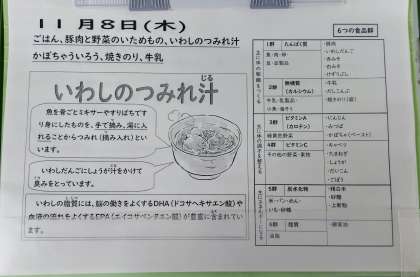 11月8日(木)
ごはん、豚肉と野菜のいためもの、いわしのつみれ汁
かぼちゃういろう、焼きのり、牛乳
いわしのつみれ汁
じる
魚を骨ごとミキサーやすりばちです
り身にしたものを、手で摘み、湯に入
れることからつみれ（摘み入れ）とい
います。
いわしだんごにしょうが汁をかけて
臭みをとっています。
いわしの脂質には、脳の働きをよくするDHA（ドコサヘキサエン酸）や
血液の流れをよくするEPA（エイコサペンタエン酸）が豊富に含まれてい
ます。
6つの食品群
1群 たんぱく質
魚・肉・卵・
豆・豆製品
・豚肉
・いわしだんご
・赤みそ
・白みそ
2群 無機質
（カルシウム）
牛乳・乳製品・
小魚・海そう
・牛乳
・焼きのり
3群 ビタミンA
（カロテン）
緑黄色野菜
・にんじん
・みつば
・かぼちゃ（ペースト）
4群 ビタミンC
その他の野菜・果物
・キャベツ
・たまねぎ
・しょうが
・だいこん
・ごぼう
5群 炭水化物
米・パン・めん・
いも・砂糖
・精白米
・砂糖
・上新粉
6群 脂質
油脂